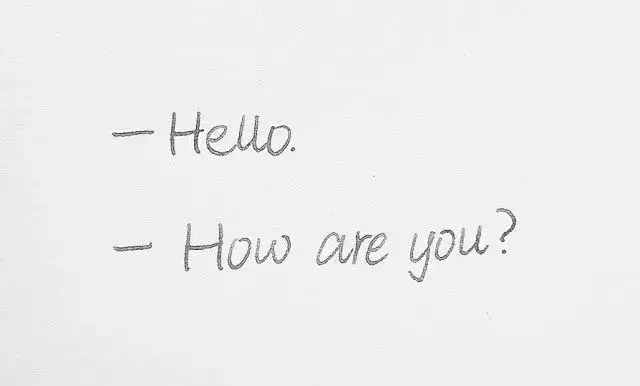 — Hello.
— How are you?